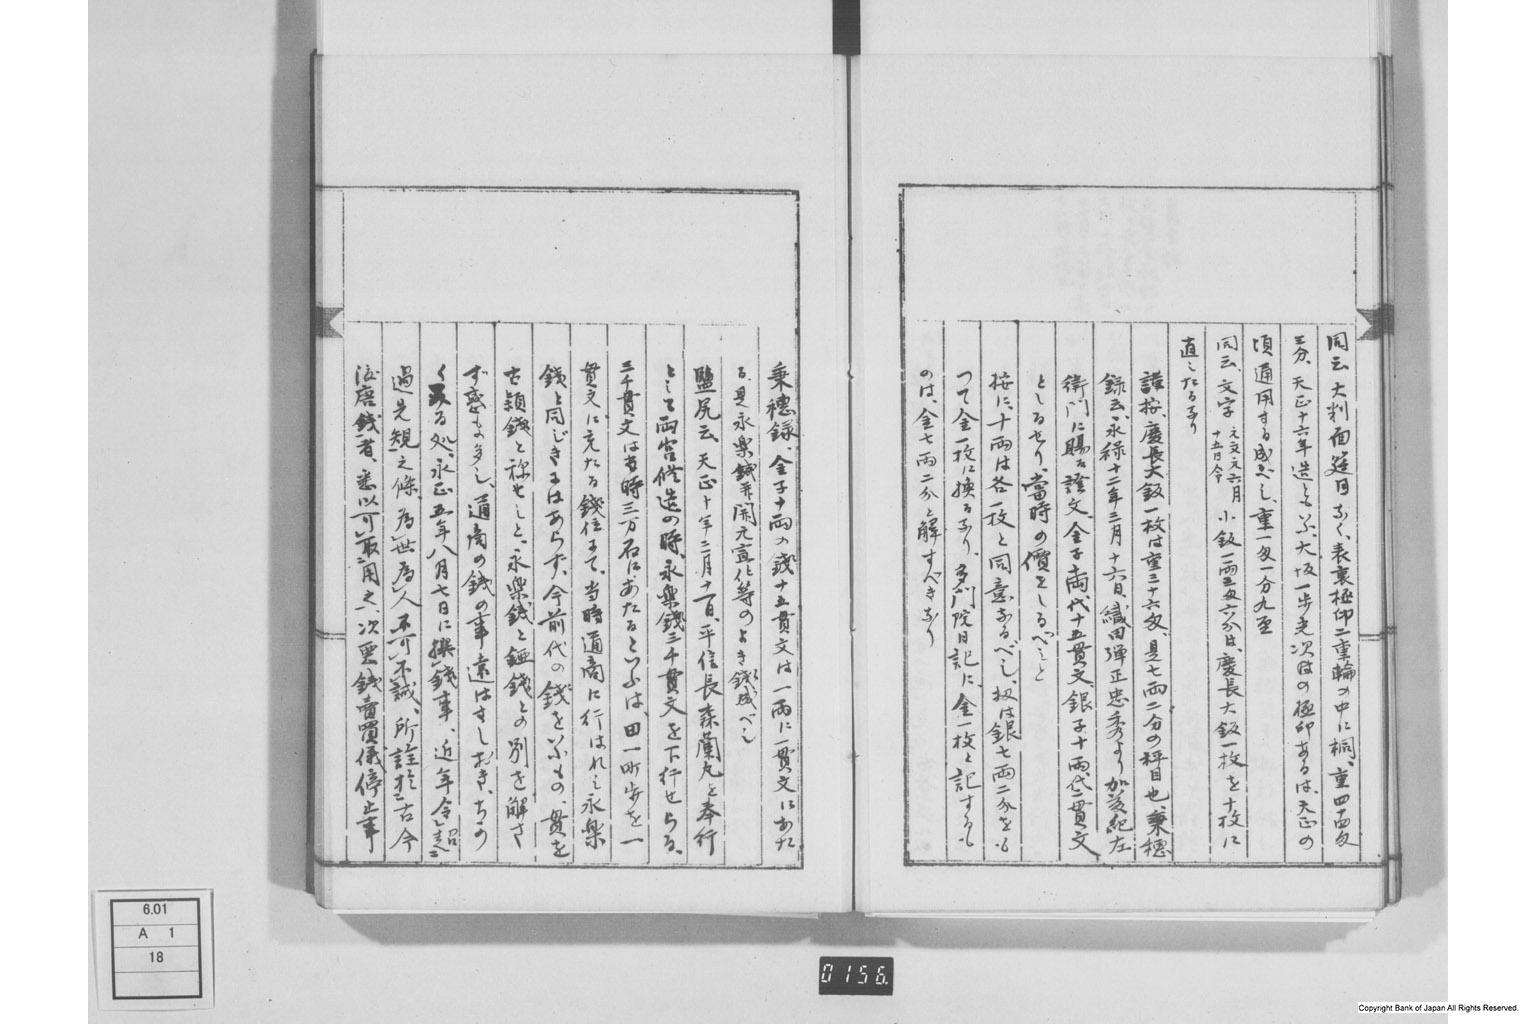 同云、大判面延目なく、表裏極印二重輪の中に桐、重四十四匁
三分、天正十六年造といふ、大坂一歩光次はの極印あるは、天正の
頃通用する成べし、重一匁一分九厘
同云、文字 元文元六月 十五日令 小鈑一両三匁六分は、慶長大鈑一枚を十枚に
直したるなり
謹按、慶長大鈑一枚は重三十六匁、是七両二分の秤目也、秉穂
録云、永禄十二年三月十六日、織田弾正忠秀より加藤紀左
衛門に賜る證文、金子十両代十五貫文、銀子十両代二貫文
としるせり、當時の價をしるべしと
按に、十両は各一枚と同意なるべし、扨は銀七両二分をも
つて金一枚に換るなり、多門院日記に、金一枚と記するも
のは、金七両二分と解すべきなり
秉穂録、金子十両の錢十五貫文は一両に一貫文にあた
る、是永樂錢并開元宣化等のよき錢成べし
鹽尻云、天正十年二月十一日、平信長森蘭丸を奉行
として両宮修造の時、永樂錢三千貫文を下行せらる、
三千貫文は當時三万石にあたるといふは、田一町歩を一
貫文に充たる錢位にて、当時通商に行はれし永樂
錢と同じきにはあらず、今前代の錢をいふもの、貫を
古頴錢と称せしと、永樂錢と鐚錢との別を解さ
ず惑もの多し、通商の錢の事違はすしおき、ちか
くみる処、永正五年八月七日に撰錢事、近年令超
過先規之條、為世為人不可不誡、所詮於古今
渡唐錢者、悉以可取用之、次悪錢賣買儀停止事
6.01
A 1
18
0156
Copyright Bank of Japan All Rights Reserved.